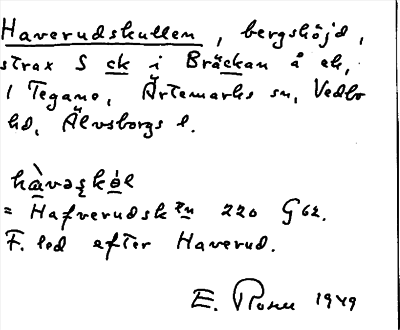 Haverudskullen, bergshöjd,
strax S ck i Bräckan å ek,
1 Tegane, Ärtemarks sn, Vedbo
hd, Älvsborgs l.
hàvəs̨kól
= Hafverudsk en 220 G 62.
F. led efter Haverud.
E. Rosell 1949